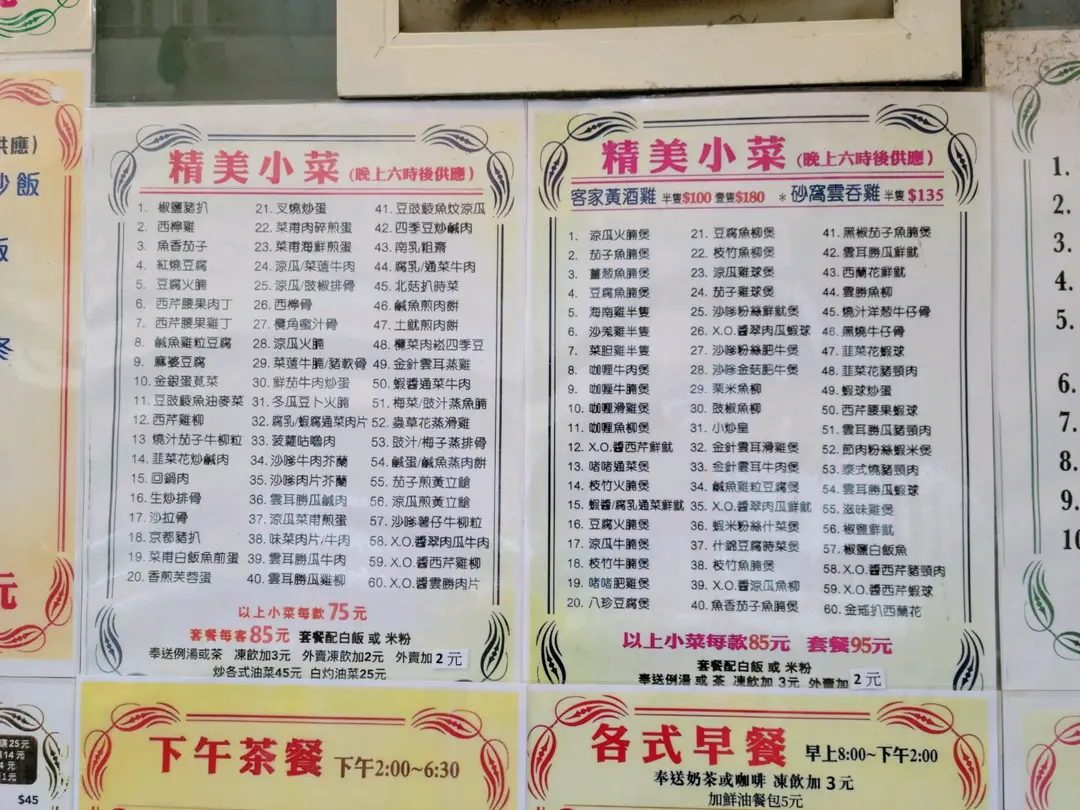 精美小菜 (晚上六時後供應)
1. 椒鹽豬扒
2. 西檸雞
3. 魚香茄子
4. 紅燒豆腐
5. 豆腐火腩
6. 西芹腰果肉丁
7. 西芹腰果雞丁
8. 鹹魚雞粒豆腐
9. 麻婆豆腐
10. 金銀蛋莧菜
11. 豆豉鯪魚油麥菜
12. 西芹雞柳
13 燒汁茄子牛柳粒
14. 韮菜花炒鹹肉
15. 回鍋肉
16. 生炒排骨
17. 沙拉骨
18. 京都豬扒
19. 菜甫白飯魚煎蛋
20. 香煎芙蓉蛋
21. 叉燒炒蛋
22. 菜甫肉碎煎蛋
23. 菜甫海鮮煎蛋
24. 涼瓜/菜薳牛肉
25. 涼瓜/豉椒排骨
26. 西檸骨
27. 欖角蜜汁骨
28. 涼瓜火腩
29. 菜薳牛腩/豬軟骨
30. 鮮茄牛肉炒蛋
31. 冬瓜豆卜火腩
32. 腐乳/蝦腐通菜肉片
33. 菠蘿咕嚕肉
34. 沙嗲牛肉芥蘭
35. 沙嗲肉片芥蘭
36. 雲耳勝瓜鹹肉
37. 涼瓜菜甫煎蛋
38. 味菜肉片/牛肉
39. 雲耳勝瓜牛肉
40. 雲耳勝瓜雞柳
41. 豆豉鯪魚炆涼瓜
42. 四季豆炒鹹肉
43. 南乳粗齋
44. 腐乳/通菜牛肉
45. 北菇扒時菜
46. 鹹魚煎肉餅
47. 土魷煎肉餅
48. 欖菜肉崧四季豆
49. 金針雲耳蒸雞
50. 蝦醬通菜牛肉
51. 梅菜/豉汁蒸魚腩
52. 蟲草花蒸滑雞
53. 豉汁/梅子蒸排骨
54. 鹹蛋/鹹魚蒸肉餅
55. 茄子煎黃立鯧
56. 涼瓜煎黃立鯧
57. 沙嗲薯仔牛柳粒
58. X.O.醬翠肉瓜牛肉
59. X.O.醬西芹雞柳
60. X.O.醬雲勝肉片
以上小菜每款 75 元
套餐每客 85 元 套餐配白飯 或 米粉
奉送例湯或茶 凍飲加3元 外賣凍飲加2元 外賣加 2 元
炒各式油菜45元 白灼油菜25元
精美小菜 (晚上六時後供應)
客家黃酒雞 半隻$100 壹隻$180 *砂窩雲吞雞 半隻 $135
1. 涼瓜火腩煲
2. 茄子魚腩煲
3. 薑葱魚腩煲
4. 豆腐魚腩煲
5. 海南雞半隻
6. 沙羗雞半隻
7. 菜胆雞半隻
8. 咖喱牛肉煲
9. 咖喱牛腩煲
10. 咖喱滑雞煲
11. 咖喱魚柳煲
12. X.O.醬西芹鮮魷
13. 啫啫通菜煲
14. 枝竹火腩煲
15. 蝦醬/腐乳通菜鮮魷
16. 豆腐火腩煲
17. 涼瓜牛腩煲
18. 枝竹牛腩煲
19. 啫啫肥雞煲
20. 八珍豆腐煲
21. 豆腐魚柳煲
22. 枝竹魚柳煲
23. 涼瓜雞球煲
24. 茄子雞球煲
25. 沙嗲粉絲鮮魷煲
26. X.O.醬翠肉瓜蝦球
27. 沙嗲粉絲肥牛煲
28. 沙嗲金菇肥牛煲
29. 栗米魚柳
30. 豉椒魚柳
31. 小炒皇
32. 金針雲耳滑雞煲
33. 金針雲耳牛肉煲
34. 鹹魚雞粒豆腐煲
35. X.O.醬翠肉瓜鮮魷
36. 蝦米粉絲什菜煲
37. 什錦豆腐時菜煲
38. 枝竹魚腩煲
39. X.O.醬涼瓜魚柳
40. 魚香茄子魚腩煲
41. 黑椒茄子魚腩煲
42. 雲耳勝瓜鮮魷
43. 西蘭花鮮魷
44. 雲勝魚柳
45. 燒汁洋葱牛仔骨
46. 黑燒牛仔骨
47. 韮菜花蝦球
48. 韮菜花豬頸肉
49. 蝦球炒蛋
50. 西芹腰果蝦球
51. 雲耳勝瓜豬頸肉
52. 節肉粉絲蝦米煲
53. 泰式燒豬頸肉
54. 雲耳勝瓜蝦球
55. 滋味雞煲
56. 椒鹽鮮魷
57. 椒鹽白飯魚
58. X.O.醬西芹豬頸肉
59. X.O.醬西芹蝦球
60. 金瑤扒西蘭花
以上小菜每款85元 套餐95元
套餐配白飯 或 米粉
奉送例湯 或 茶 凍飲加 3元 外賣加 2 元
下午茶餐 下午2:00~6:30
各式早餐 早上8:00~下午2:00
奉送奶茶或咖啡 凍飲加 3 元
加鮮油餐包5元
供應)
炒飯
飯
元
25元
14元
$45
1.
2.
3.
4.
5.
6.
7.
8.
9.
10